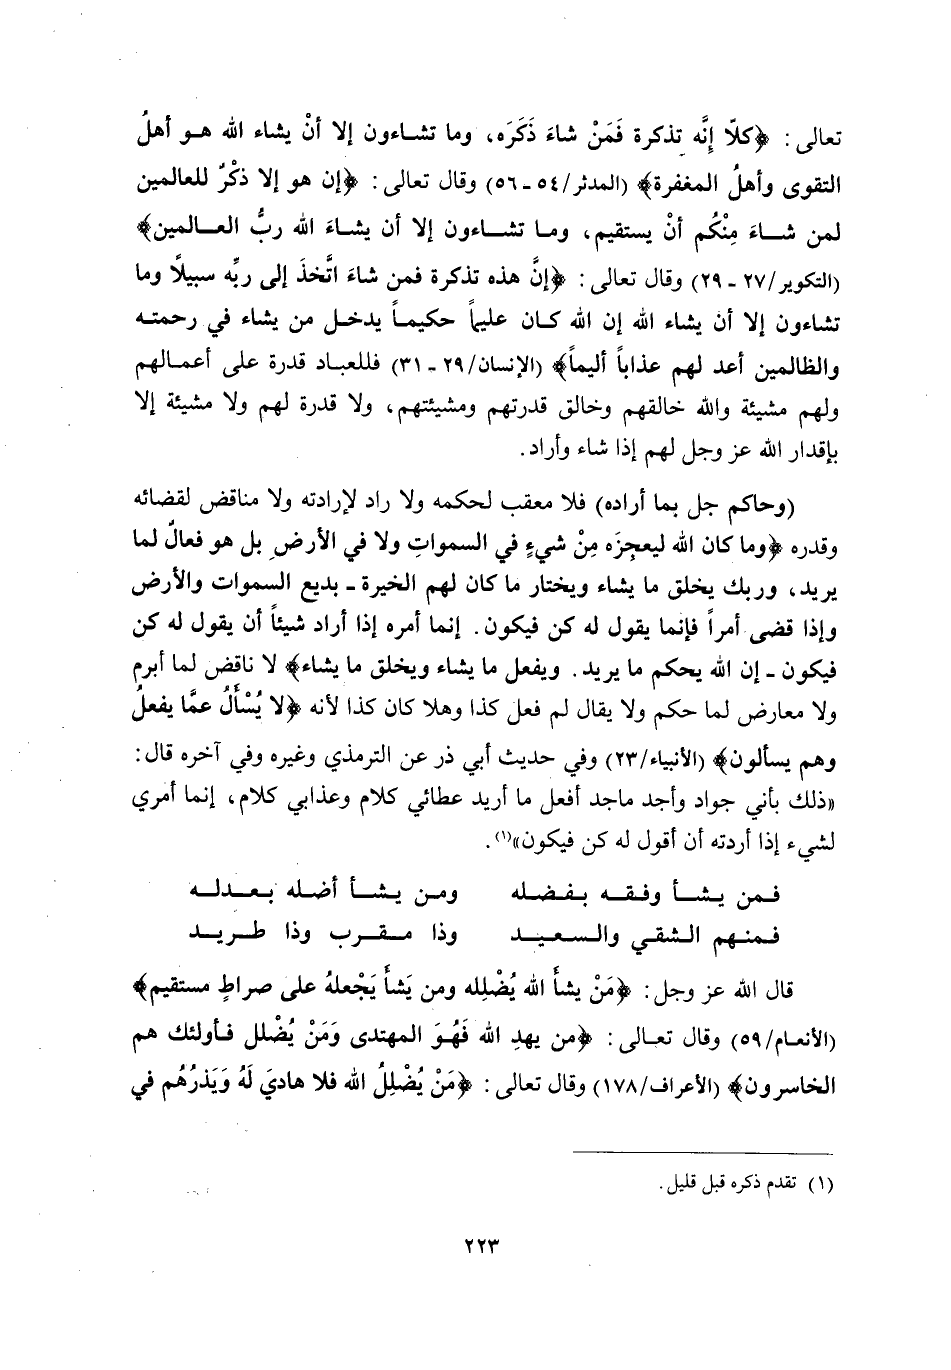 تعالى: ﴿كلّا إنَّه تذكرة فَمَنْ شاءَ ذَكَرَه، وما تشاءون إلا أنْ يشاء الله هو أهلُ
التقوى وأهلُ المغفرة﴾ (المدثر/٥٤ ـ ٥٦) وقال تعالى: ﴿إن هو إلا ذكْرٌ للعالمين
لمن شاءَ مِنْكُم أنْ يستقيم، وما تشاءون إلا أن يشاءَ الله ربُّ العالمين﴾
(التكوير/٢٧ ـ ٢٩) وقال تعالى: ﴿إنَّ هذه تذكرة فمن شاءَ اتَّخذَ إلى ربِّه سبيلًا وما
تشاءون إلا أن يشاء الله إن الله كان عليماً حكيماً يدخل من يشاء في رحمته
والظالمين أعد لهم عذاباً أليماً﴾ (الإنسان/٢٩ ـ ٣١) فللعباد قدرة على أعمالهم
ولهم مشيئة والله خالقهم وخالق قدرتهم ومشيئتهم، ولا قدرة لهم ولا مشيئة إلا
بإقدار الله عز وجل لهم إذا شاء وأراد.
(وحاكم جل بما أراده) فلا معقب لحكمه ولا راد لإرادته ولا مناقض لقضائه
وقدره ﴿وما كان الله ليعجِزَه مِنْ شيءٍ في السموات ولا في الأرضِ بل هو فعالٌ لما
يريد، وربك يخلق ما يشاء ويختار ما كان لهم الخيرة ـ بديع السموات والأرض
وإذا قضى أمراً فإنما يقول له كن فيكون. إنما أمره إذا أراد شيئاً أن يقول له كن
فيكون ـ إن الله يحكم ما يريد. ويفعل ما يشاء ويخلق ما يشاء﴾ لا ناقض لما أبرم
ولا معارض لما حكم ولا يقال لم فعل كذا وهلا كان كذا لأنه ﴿لا يُسْأَلُ عمَّا يفعلُ
وهم يسألون﴾ (الأنبياء/٢٣) وفي حديث أبي ذر عن الترمذي وغيره وفي آخره قال:
«ذلك بأني جواد وأجد ماجد أفعل ما أريد عطائي كلام وعذابي كلام، إنما أمري
لشيء إذا أردته أن أقول له كن فيكون»(١).
فمن يشأ وفقه بفضله ومن يشأ أضله بعدله
فمنهم الشقي والسعيد وذا مقرب وذا طريد
قال الله عز وجل: ﴿مَنْ يشأَ الله يُضْلِله ومن يَشأَ يَجْعلهُ على صراطٍ مستقيم﴾
(الأنعام/٥٩) وقال تعالى: ﴿من يهدِ الله فَهُوَ المهتدى وَمَنْ يُضْلل فأولئك هم
الخاسرون﴾ (الأعراف/١٧٨) وقال تعالى: ﴿مَنْ يُضْلِلُ الله فلا هاديَ لَهُ وَيَذرُهُم في
(١) تقدم ذكره قبل قليل.
٢٢٣